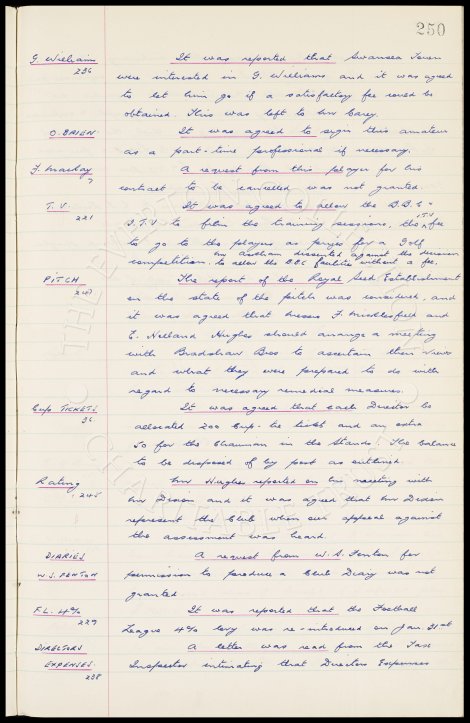 250
G. Williams It was reported that Swansea Town
236 were interested in G. Williams and it was agreed
to let him go if a satisfactory fee could be
obtained. This was left to Mr Carey.
O. BRIEN It was agreed to sign this amateur
as a part-time professional if necessary.
F. Mackay A request from this player for his
7 contract to be cancelled was not granted.
T.V. It was agreed to allow the B.B.C &
221 I.T.V to film the training sessions, the I.T.V fee
to go to the players as prizes for a Golf
competition. Mr dissented against the decision
to allow the B.B.C facilities without a fee.
PITCH The report of the Royal Seed Establishment
240 on the state of the pitch was considered, and
it was agreed that Messrs F. Micklesfield and
E. Holland Hughes should arrange a meeting
with Bradshaw Bros to ascertain their views
and what they were prepared to do with
regard to necessary remedial measures.
Cup TICKETS It was agreed that each Director be
36 allocated 200 Cup-tie tickets and an extra
50 for the Chairman in the Stands. The balance
to be disposed of by post as outlined.
Rating Mr Hughes reported on his meeting with
245 Mr Dixon and it was agreed that Mr Dixon
represent the Club when our appeal against
the assessment was heard.
DIARIES A request from W.S. Fenton for
W.S. FENTON permission to produce a Club Diary was not
granted
F.L. 4% It was reported that the Football
229 League 4% levy was re-introduced on Jan. 21st
DIRECTORS A letter was read from the Tax
EXPENSES Inspector intimating that Directors Expenses
238